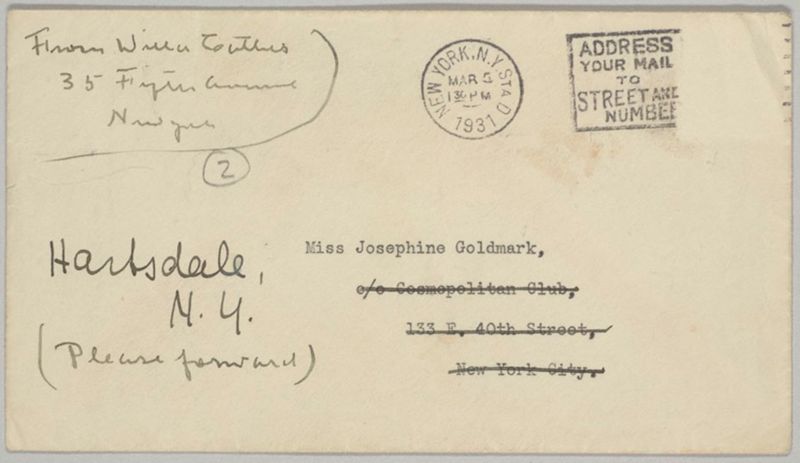 From Willa Cather
35 Fifth Avenue
New York
2
NEW YORK, N.Y. STA D
MAR 5
1 30 PM
1931
ADDRESS
YOUR MAIL
TO
STREET AND
NUMBER
Miss Josephine Goldmark,
c/o Cosmopolitan Club,
133 E. 40th Street,
New York City.
Hartsdale,
N.Y.
(Please forward)